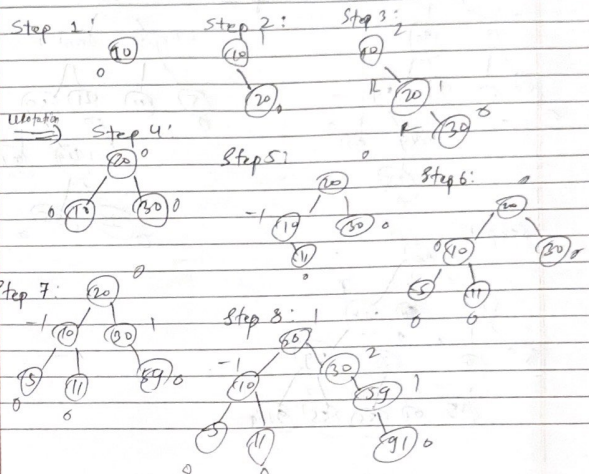 Step 1: Step 2: Step 3:
10 0
10 1 20 0
10 2 R 20 1 R 30 0
Step 4:
20 0
0 10 30 0
Step 5: 0
20
-1 10 30 0
11
0
Step 6: 0
20
0 10 30 0
5 11
0 0
Step 7: 0
20
-1 10 30 1
5 11 59 0
0 0
Step 8: 1
20
-1 10 30 2
59 1
5 11 91 0
0 0